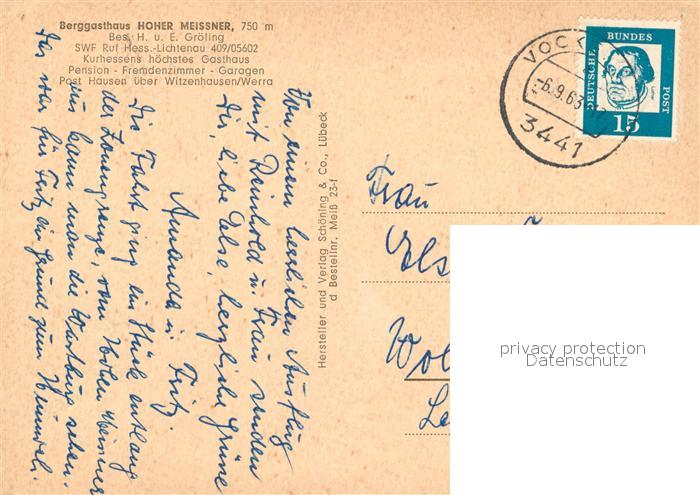 Berggasthaus HOHER MEISSNER, 750 m
Bes. H. u. E. Gröling
SWF Ruf Hess.-Lichtenau 409/05602
Kurhessens höchstes Gasthaus
Pension - Fremdenzimmer - Garagen
Post Hausen über Witzenhausen/Werra
Von einem herrlichen Ausflug
mit Reinhold u. Frau senden
dir, liebe Else, herzliche Grüße
Amanda u. Fritz.
Die Fahrt ging ein Stück entlang
der Zonengrenze, vom Hohen Meissner
aus kann man die Wartburg sehen.
Das war für Fritz ein Grund zum
Hersteller und Verlag Schöning & Co., Lübeck
d Bestellnr. Meiß 23-f
DEUTSCHE BUNDES POST
15
-6.9.63
3441
Frau
Els
Wol
privacy protection
Datenschutz